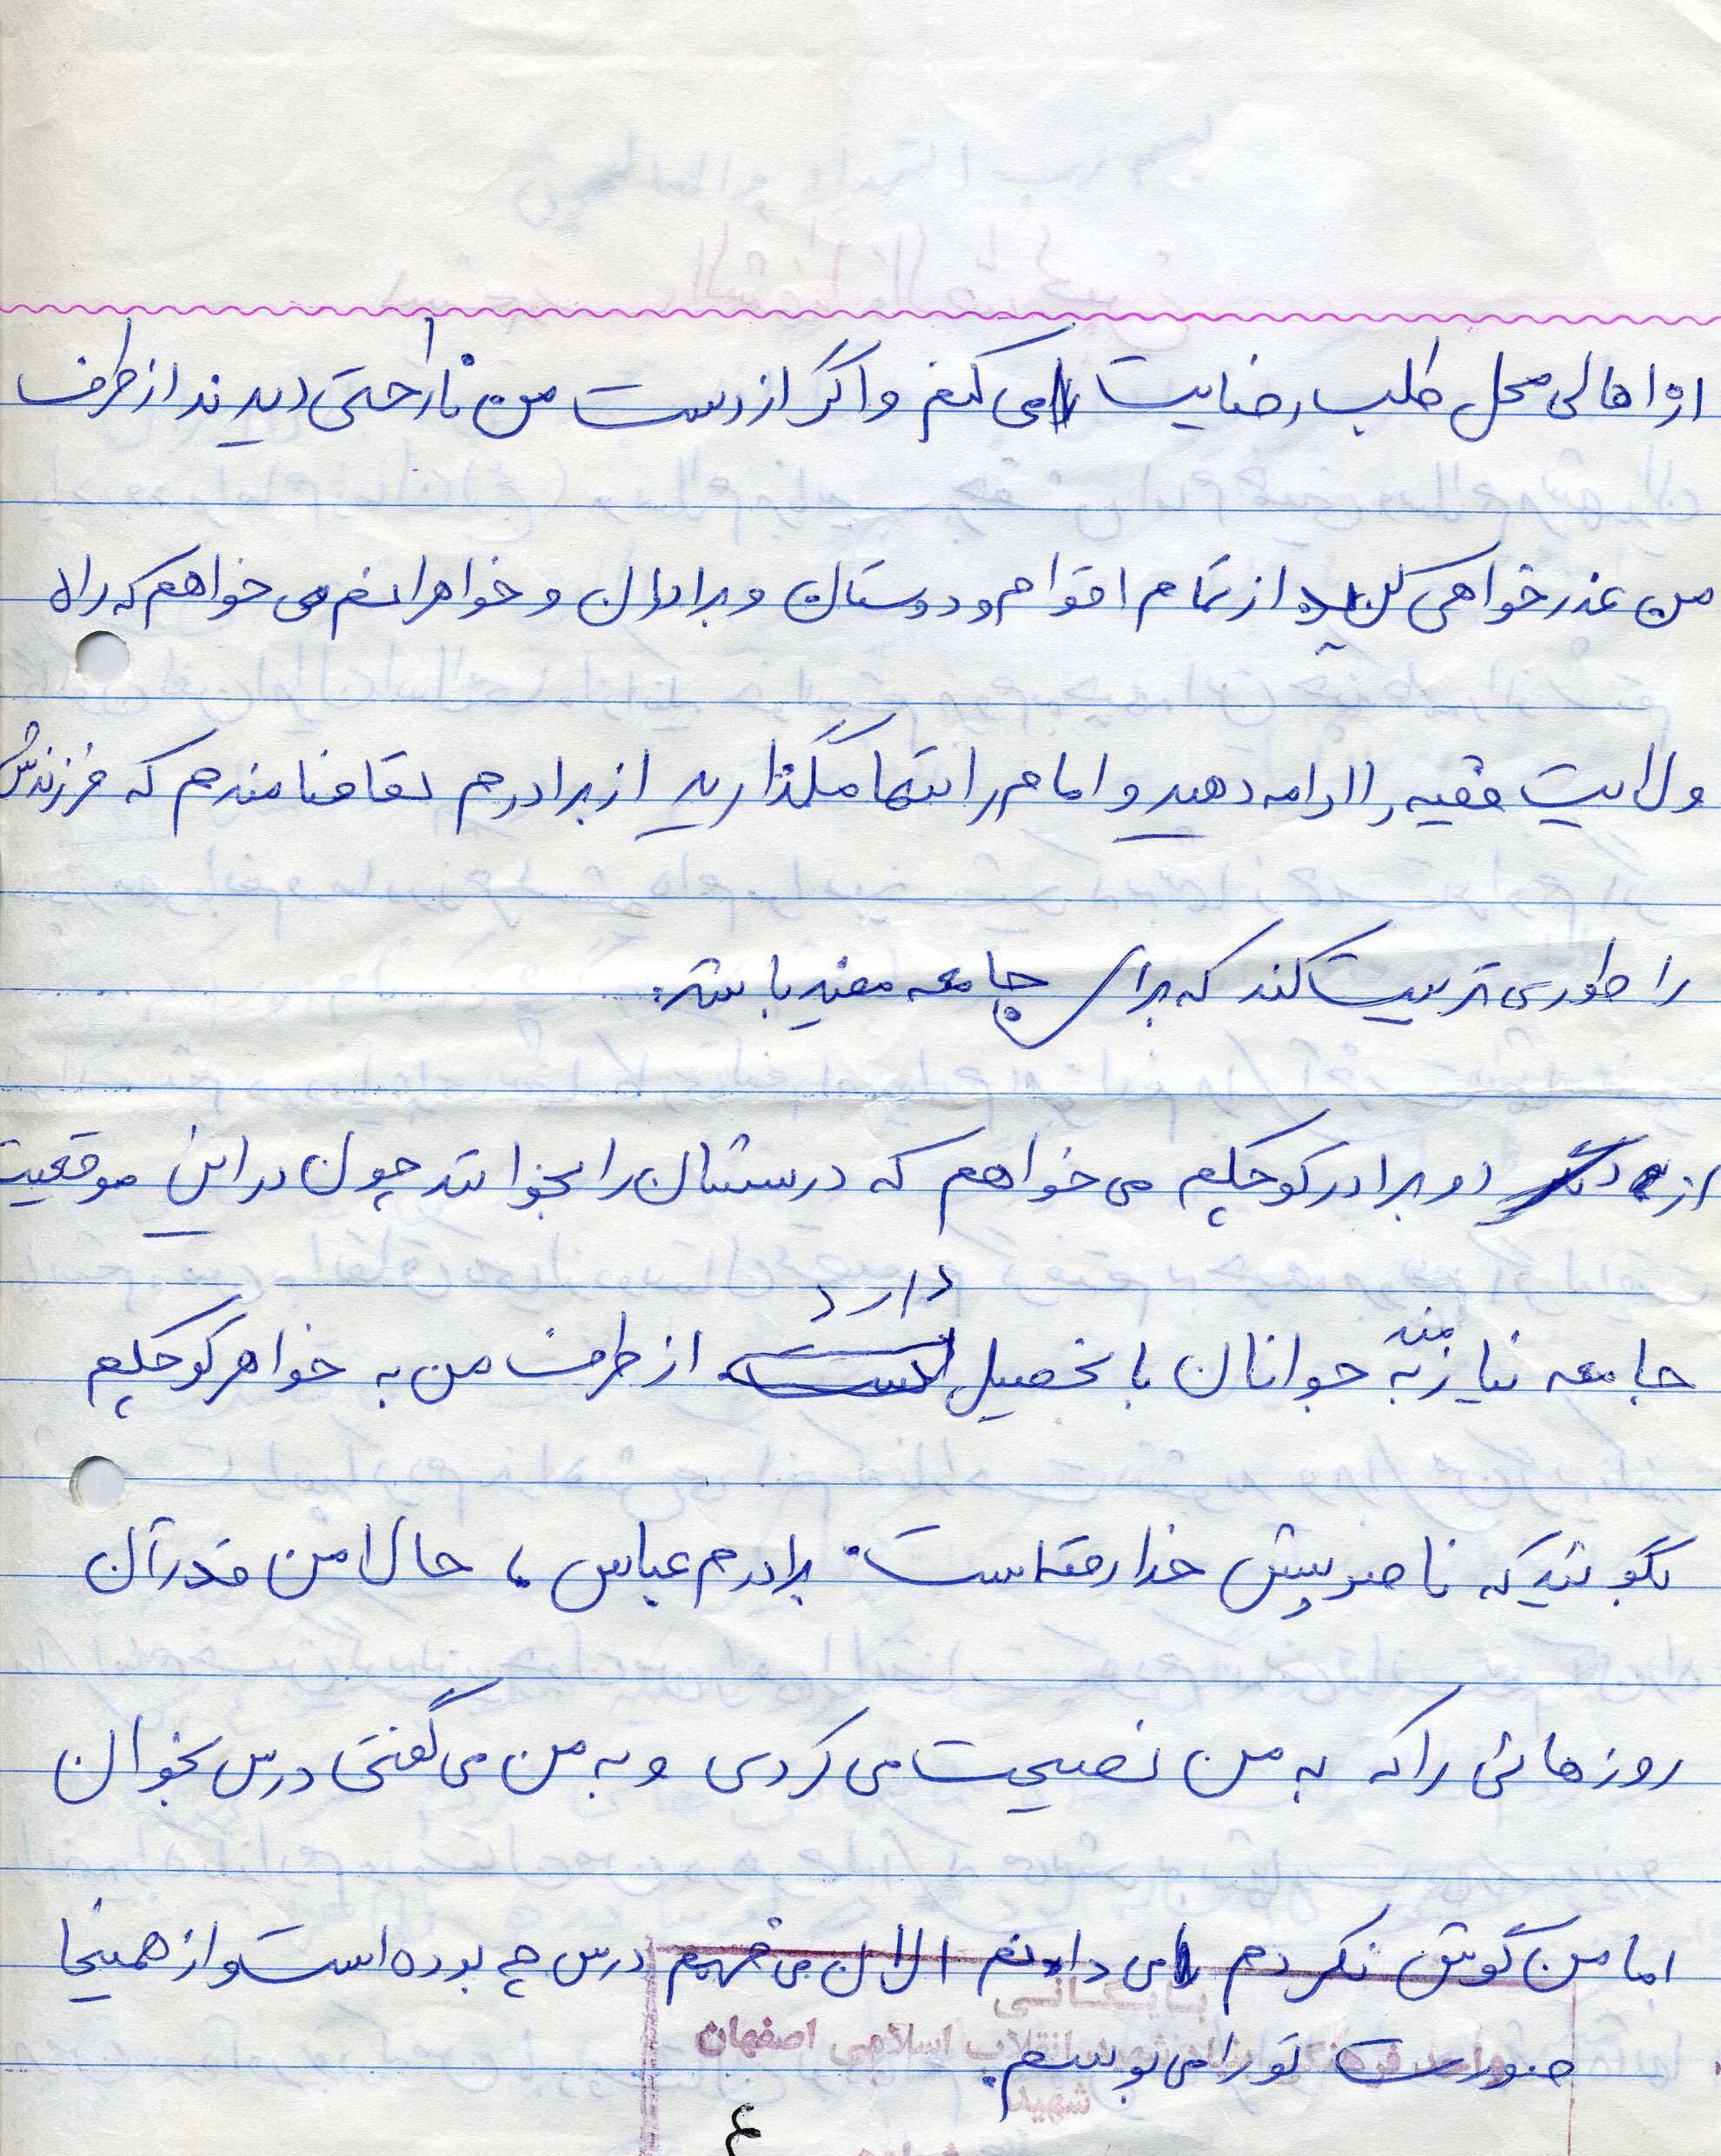 از اهالی محل طلب رضایت می کنم و اگر از دست من ناراحتی دیدند از طرف
من عذر خواهی کنید از تمام اقوام و دوستان و برادران و خواهرانم می خواهم که راه
ولایت فقیه را ادامه دهید و امام را تنها مگذارید از برادرم تقاضا مندم که فرزندش
را طوری تربیت کند که برای جامعه مفید باشد.
از دو برادر کوچکم می خواهم که درسشان را بخوانند چون در این موقعیت
جامعه نیازمند به جوانان با تحصیل دارد از طرف من به خواهر کوچکم
بگوئید که ناصر پیش خدا رفته است. برادرم عباس، حالا من قدر آن
روزهائی را که به من نصیحت می کردی و به من می گفتی درس بخوان
اما من گوش نکردم می دانم الان می فهمم درس چه بوده است و از همینجا
صورت تو را می بوسم.
بایگانی
واحد فرهنگی بنیاد شهید انقلاب اسلامی اصفهان
شهید
٤